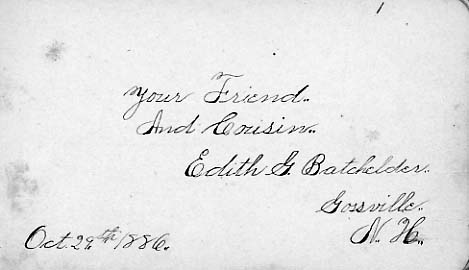 Your Friend..
And Cousin..
Edith G. Batchelder.
Gossville.
N. H.
Oct. 29th 1886.